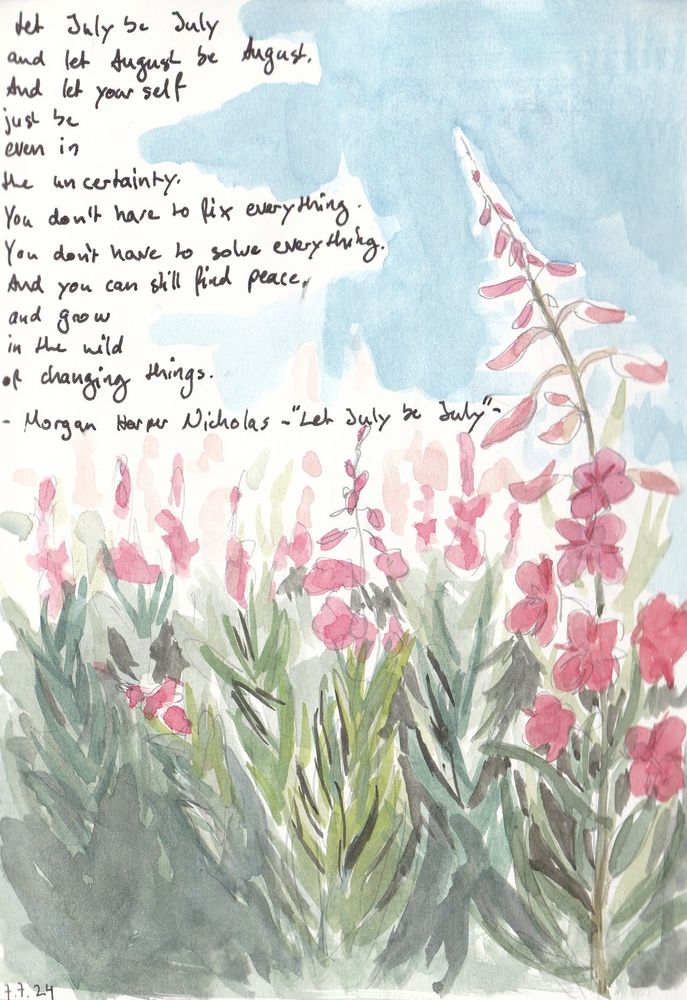 Let July be July
and let August be August.
And let your self
just be
even in
the uncertainty.
You don't have to fix everything.
You don't have to solve everything.
And you can still find peace,
and grow
in the wild
of changing things.
- Morgan Harper Nicholas - "Let July be July" -
7.7.24